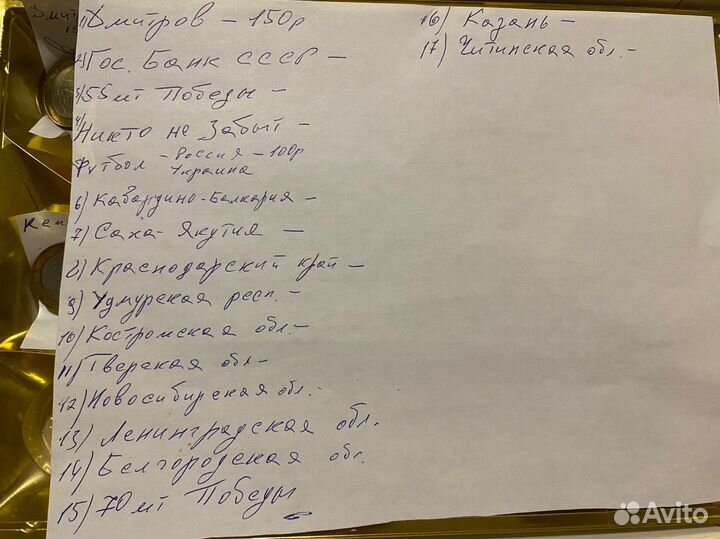 1) Дмитров – 150р
2) Гос. Банк СССР –
3) 55 лт Победы –
4) Никто не Забыт –
Футбол – Россия – 100р
Украина
6) Кабардино-Балкария –
7) Саха-Якутия –
8) Краснодарский край –
9) Удмурская респ. –
10) Костромская обл. –
11) Тверская обл –
12) Новосибирская обл. –
13) Ленинградская обл.
14) Белгородская обл.
15) 70 лт Победы
16) Казань –
17) Читинская обл. –
Кем
Avito